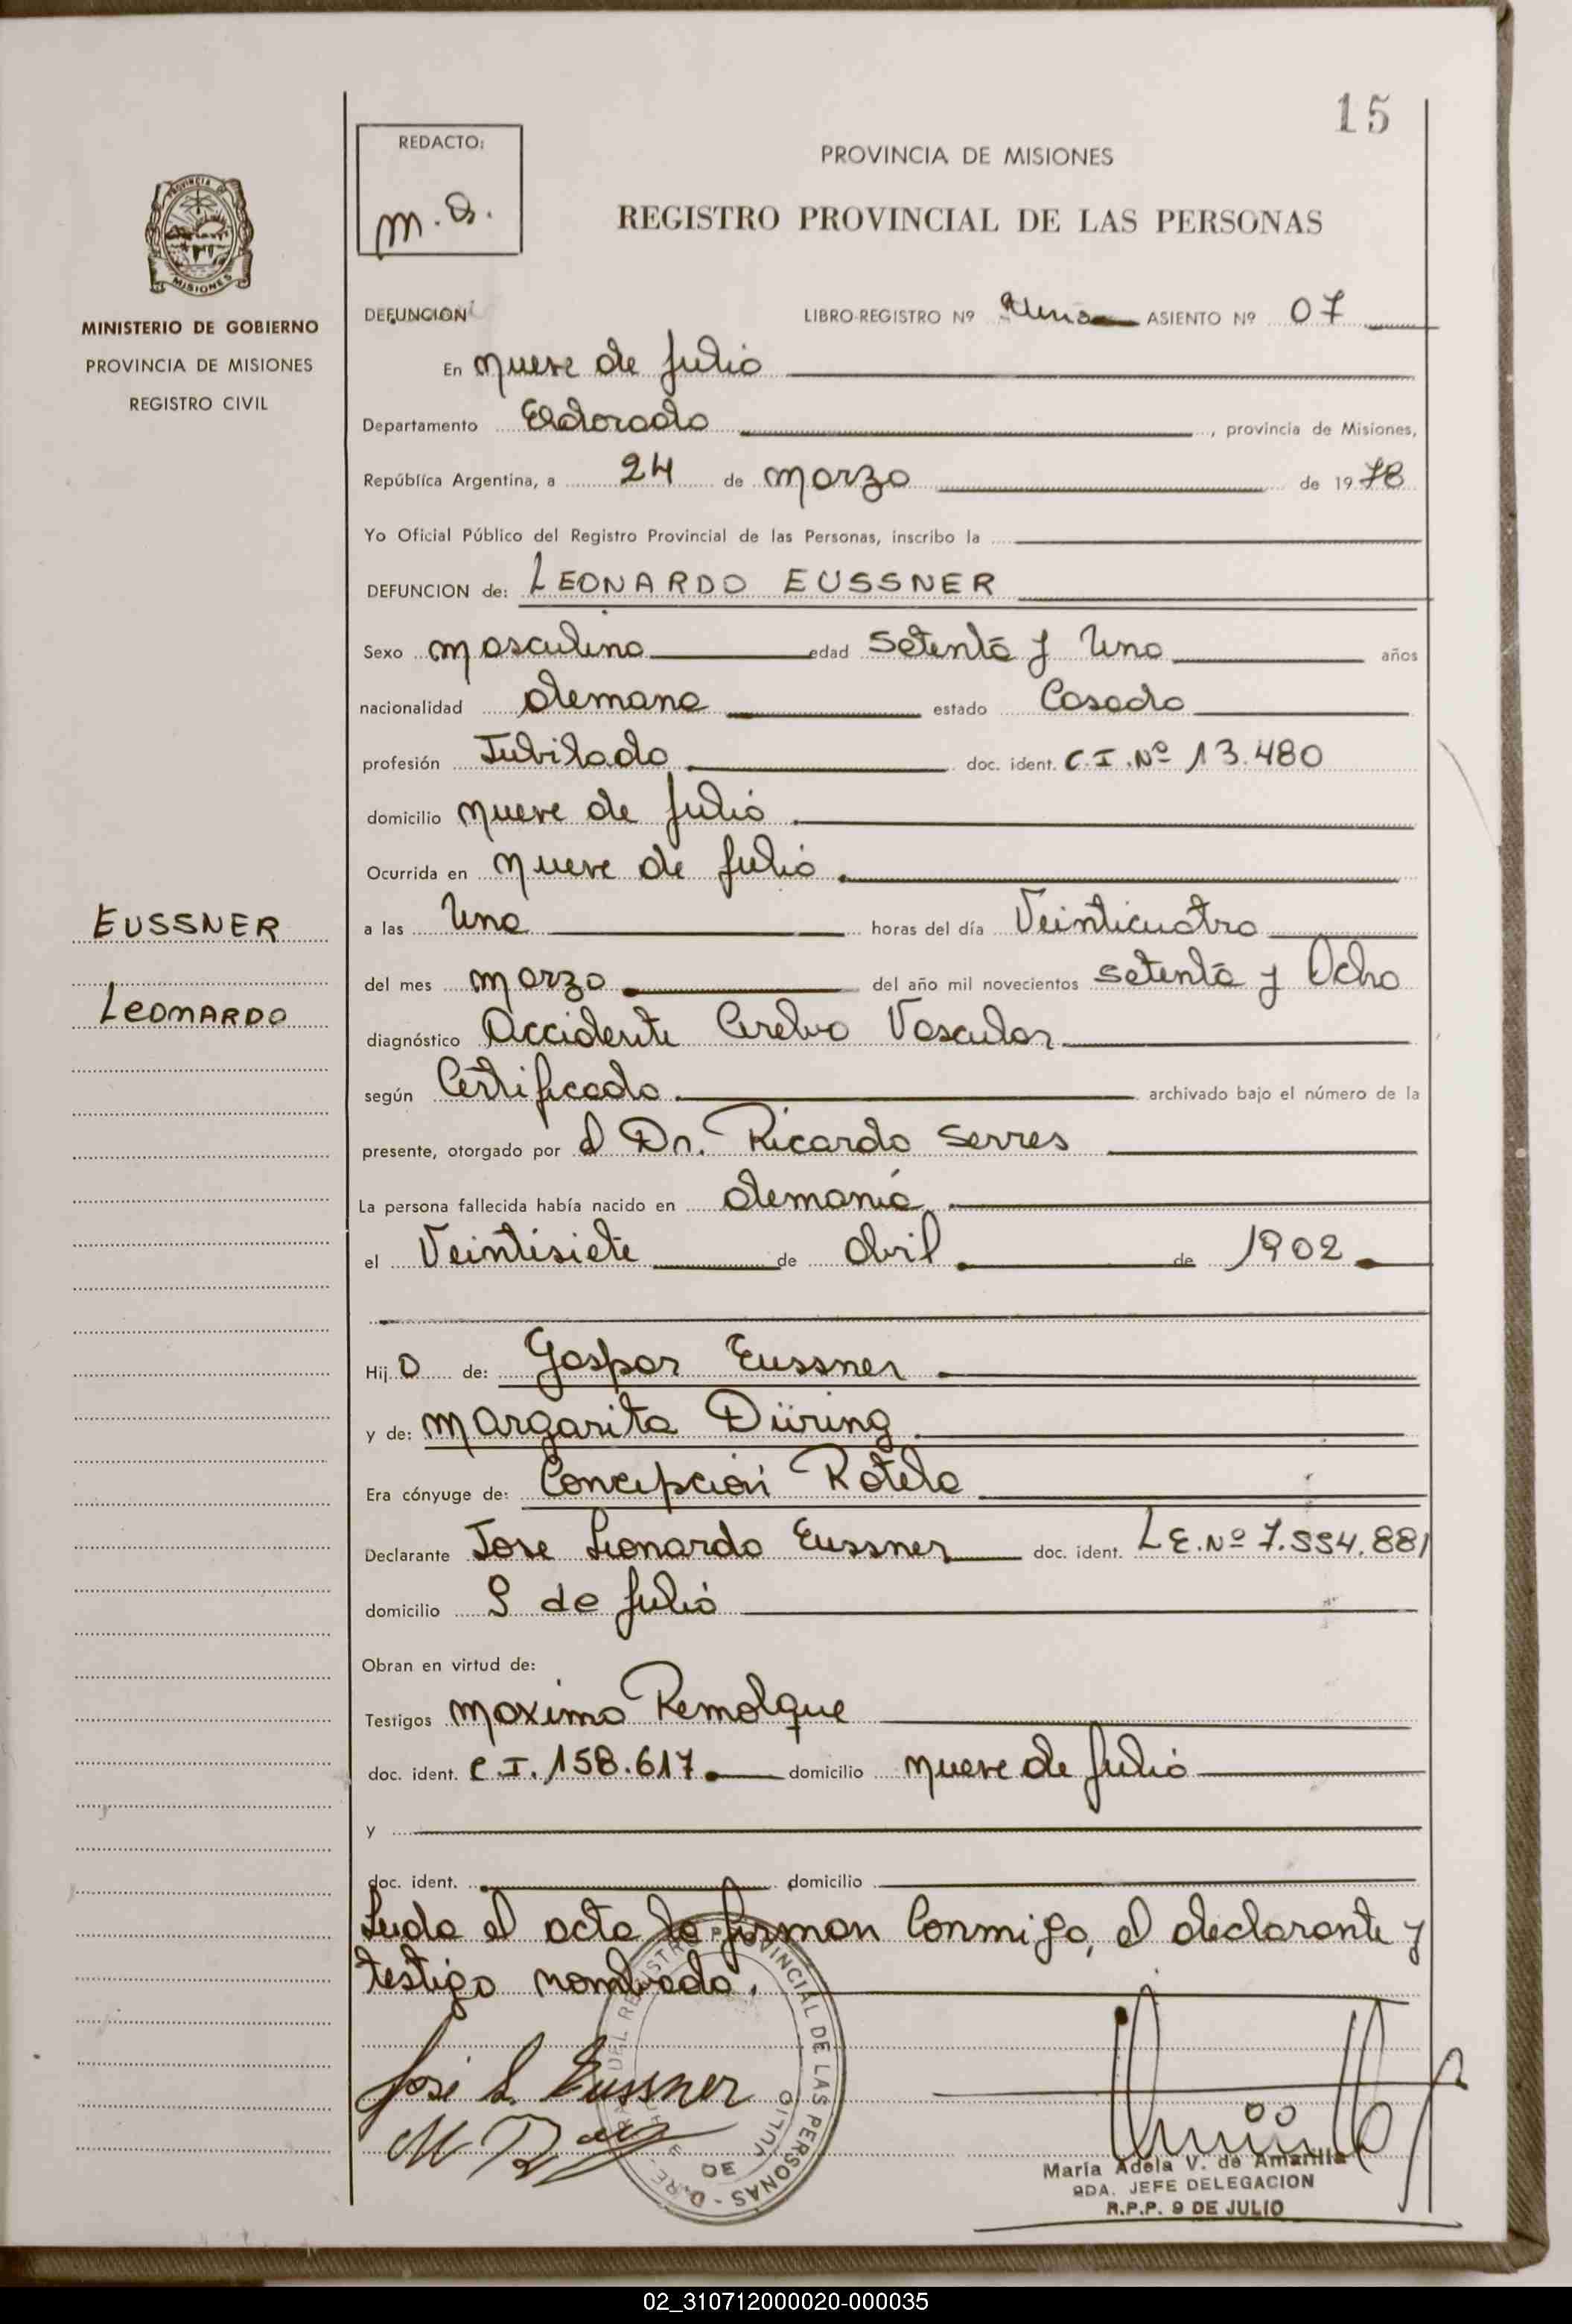 15
REDACTO:
PROVINCIA DE MISIONES
REGISTRO PROVINCIAL DE LAS PERSONAS
PROVINCIA DE
MISIONES
MINISTERIO DE GOBIERNO
PROVINCIA DE MISIONES
REGISTRO CIVIL
DEFUNCION LIBRO-REGISTRO Nº Uno ASIENTO Nº 07
En Nueve de Julio
Departamento Eldorado, provincia de Misiones,
República Argentina, a 24 de Marzo de 1978
Yo Oficial Público del Registro Provincial de las Personas, inscribo la
DEFUNCION de: LEONARDO EUSSNER
Sexo Masculino edad Setenta y Uno años
nacionalidad Alemana estado Casado
profesión Jubilado doc. ident. C.I.Nº 13.480
domicilio Nueve de Julio
Ocurrida en Nueve de Julio
EUSSNER
LEONARDO
a las Una horas del día Veinticuatro
del mes Marzo del año mil novecientos setenta y Ocho
diagnóstico Accidente Cerebro Vascular
según Certificado archivado bajo el número de la
presente, otorgado por el Dr. Ricardo Serres
La persona fallecida había nacido en Alemania
el Veintisiete de Abril de 1902
Hijo de: Gaspar Eussner
y de: Margarita Düring
Era cónyuge de: Concepción Rotela
Declarante Jose Leonardo Eussner doc. ident. L.E.Nº 7.554.881
domicilio 9 de Julio
Obran en virtud de:
Testigos Maximo Remolque
doc. ident. C.I. 158.617 domicilio Nueve de Julio
y
doc. ident. domicilio
Leida el acta la firman Conmigo, el declarante y
testigo nombrado.
José L. Eussner
DEL REGISTRO PROVINCIAL DE LAS PERSONAS
DE JULIO
María Adela V. de Amarilla
2DA. JEFE DELEGACION
R.P.P. 9 DE JULIO
02_310712000020-000035